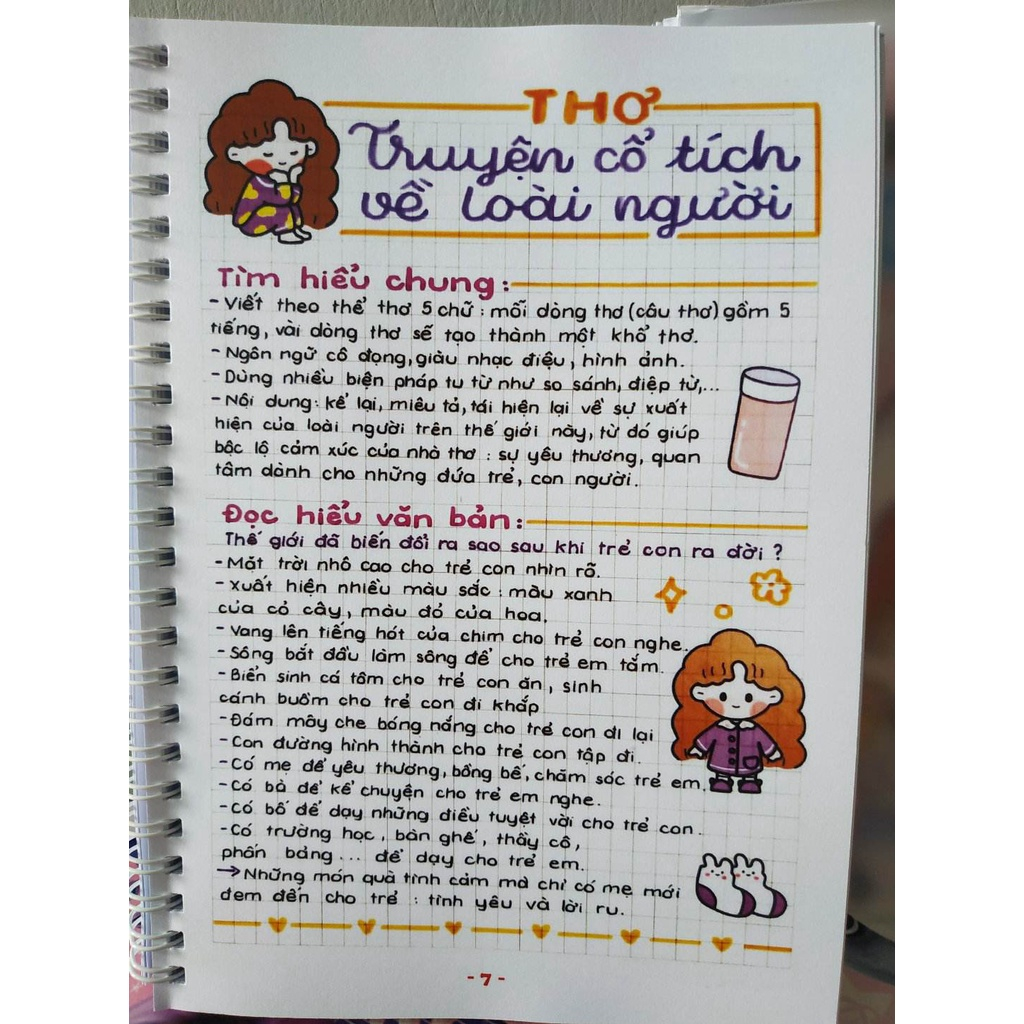 THƠ
Truyện cổ tích
về loài người
Tìm hiểu chung:
- Viết theo thể thơ 5 chữ : mỗi dòng thơ (câu thơ) gồm 5
tiếng, vài dòng thơ sẽ tạo thành một khổ thơ.
- Ngôn ngữ cô đọng, giàu nhạc điệu, hình ảnh.
- Dùng nhiều biện pháp tu từ như so sánh, điệp từ,...
- Nội dung: kể lại, miêu tả, tái hiện lại về sự xuất
hiện của loài người trên thế giới này, từ đó giúp
bộc lộ cảm xúc của nhà thơ : sự yêu thương, quan
tâm dành cho những đứa trẻ, con người.
Đọc hiểu văn bản:
Thế giới đã biến đổi ra sao sau khi trẻ con ra đời ?
- Mặt trời nhô cao cho trẻ con nhìn rõ.
- Xuất hiện nhiều màu sắc : màu xanh
của cỏ cây, màu đỏ của hoa.
- Vang lên tiếng hót của chim cho trẻ con nghe.
- Sông bắt đầu làm sông để cho trẻ em tắm.
- Biển sinh cá tôm cho trẻ con ăn, sinh
cánh buồm cho trẻ con đi khắp
- Đám mây che bóng nắng cho trẻ con đi lại
- Con đường hình thành cho trẻ con tập đi.
- Có mẹ để yêu thương, bồng bế, chăm sóc trẻ em.
- Có bà để kể chuyện cho trẻ em nghe.
- Có bố để dạy những điều tuyệt vời cho trẻ con.
- Có trường học, bàn ghế, thầy cô,
phấn bảng... để dạy cho trẻ em.
→ Những món quà tình cảm mà chỉ có mẹ mới
đem đến cho trẻ : tình yêu và lời ru.
- 7 -